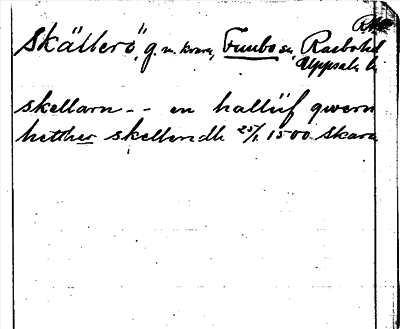 RA
Skällerö, g. m. kvarn, Funbo sn, Rasbo hd
Uppsala l.
skellarn -- en hallüf qwern
hetther skellerdh 25/1 1500 Skara